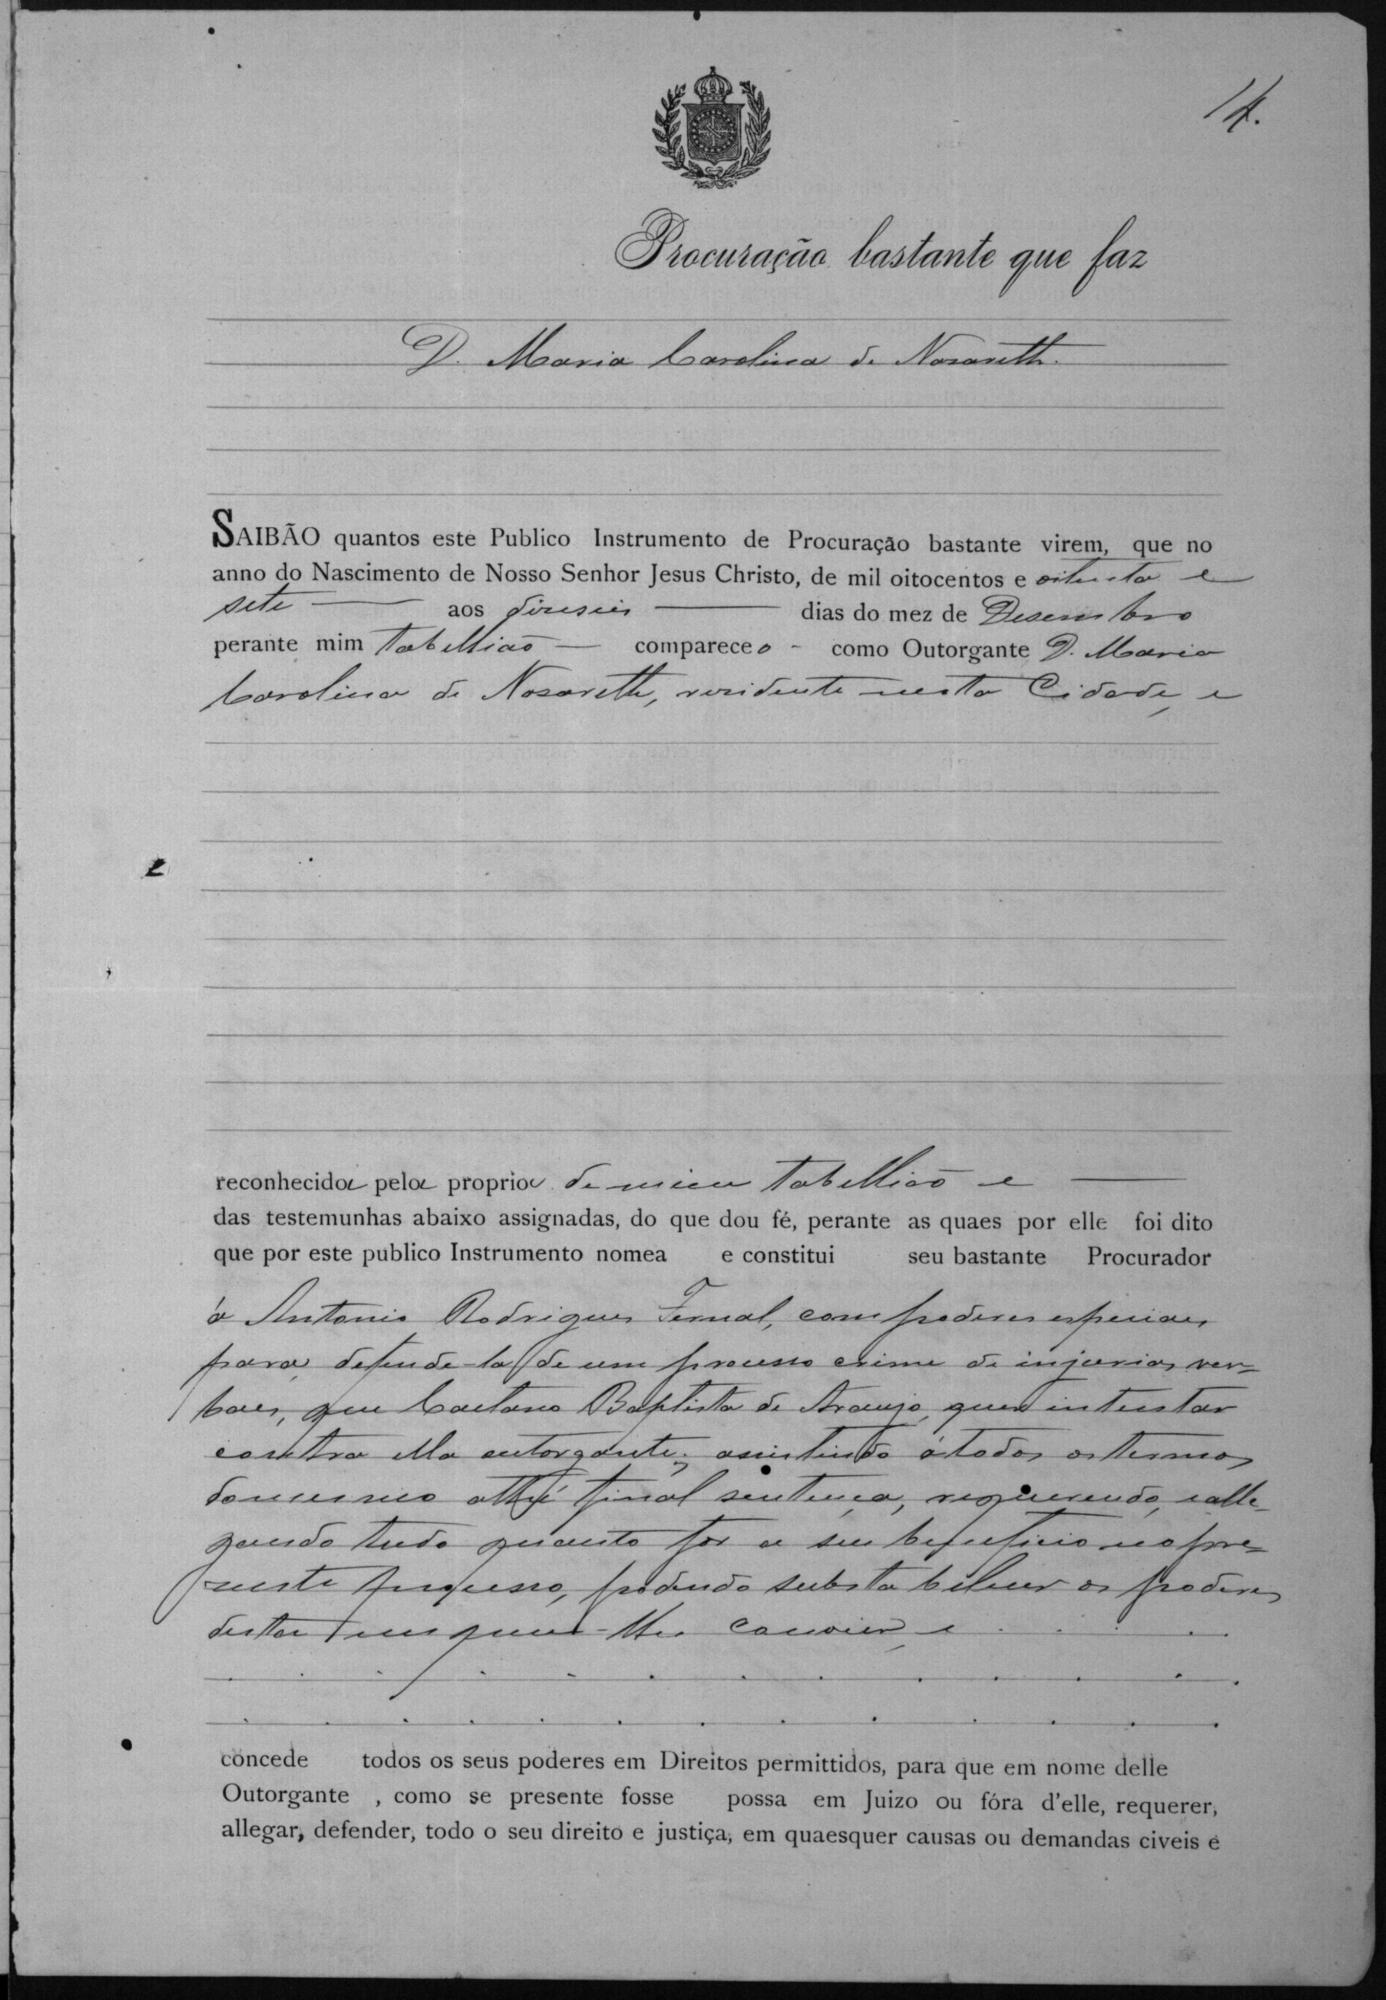 14.
Procuração bastante que faz
D. Maria Carolina de Nasareth.
SAIBÃO quantos este Publico Instrumento de Procuração bastante virem, que no
anno do Nascimento de Nosso Senhor Jesus Christo, de mil oitocentos e oitenta e
sete — aos diseseis — dias do mez de Desembro
perante mim tabellião — compareceo - como Outorgante D. Maria
Carolina de Nasareth, residente nesta Cidade, e
reconhecida pela propria de mim tabellião e —
das testemunhas abaixo assignadas, do que dou fé, perante as quaes por elle foi dito
que por este publico Instrumento nomea e constitui seu bastante Procurador
á Antonio Rodrigues Fernal, com poderes especiaes
para defende-la de um processo crime de injurias ver=
baes, que Caetano Baptista de Araujo, quer intentar
contra ella outorgante; assistindo á todos os termos
do mesmo athé final sentença, requerendo, e alle-
gando tudo quanto for a seu beneficio no pre=
sente processo, podendo substabelecer os poderes
desta em quem lhe convier, e
concede todos os seus poderes em Direitos permittidos, para que em nome delle
Outorgante , como se presente fosse possa em Juizo ou fóra d'elle, requerer,
allegar, defender, todo o seu direito e justiça, em quaesquer causas ou demandas civeis e